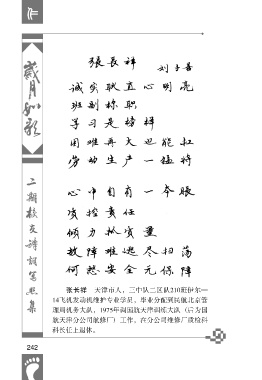 作
岁月如歌
二期校友诗词写照集
张长祥
刘子善
诚实耿直心明亮
班副称职
学习是榜样
困难再大也能扛
劳动生产一猛将
心中自有一本账
质控责任
倾力抓质量
故障难逃尽扫荡
何愁安全无保障
张长祥 天津市人，三中队二区队210班伊尔—
14飞机发动机维护专业学员，毕业分配到民航北京管
理局机务大队，1975年调回航天津训练大队（后为国
航天津分公司航修厂）工作，在分公司维修厂质检科
科长任上退休。
242